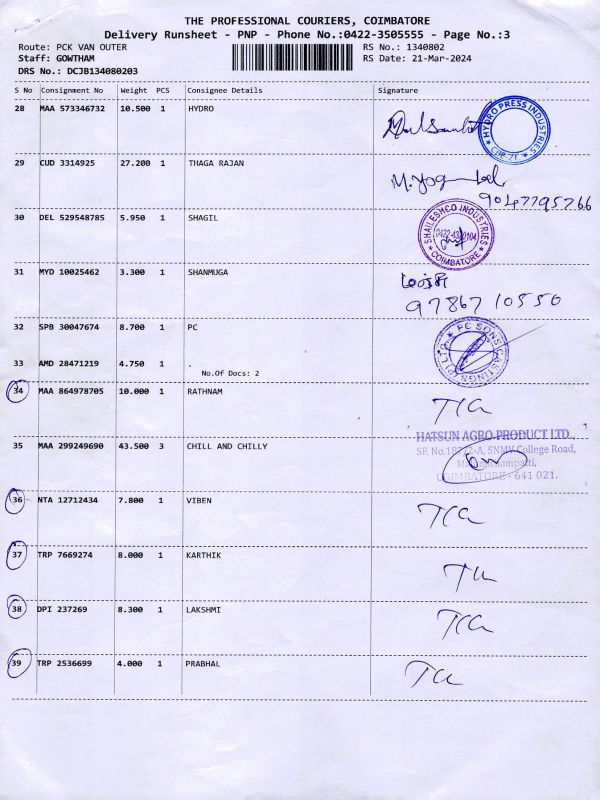 THE PROFESSIONAL COURIERS, COIMBATORE
Delivery Runsheet - PNP - Phone No.:0422-3505555 - Page No.:3
Route: PCK VAN OUTER RS No.: 1340802
Staff: GOWTHAM RS Date: 21-Mar-2024
DRS No.: DCJB134080203
S No Consignment No Weight PCS Consignee Details Signature
28 MAA 573346732 10.500 1 HYDRO
HYDRO PRESS INDUSTRIES
29 CUD 3314925 27.200 1 THAGA RAJAN
9047795266
30 DEL 529548785 5.950 1 SHAGIL
SHAILESHCO INDUSTRIES
COIMBATORE
31 MYD 10025462 3.300 1 SHANMUGA
9786710550
32 SPB 30047674 8.700 1 PC
PC SONS CASTINGS (P) LTD
33 AMD 28471219 4.750 1
No.Of Docs: 2
34 MAA 864978705 10.000 1 RATHNAM
35 MAA 299249690 43.500 3 CHILL AND CHILLY
HATSUN AGRO PRODUCT LTD.,
SNMV College Road,
COIMBATORE - 641 021.
36 NTA 12712434 7.800 1 VIBEN
37 TRP 7669274 8.000 1 KARTHIK
38 DPI 237269 8.300 1 LAKSHMI
39 TRP 2536699 4.000 1 PRABHAL